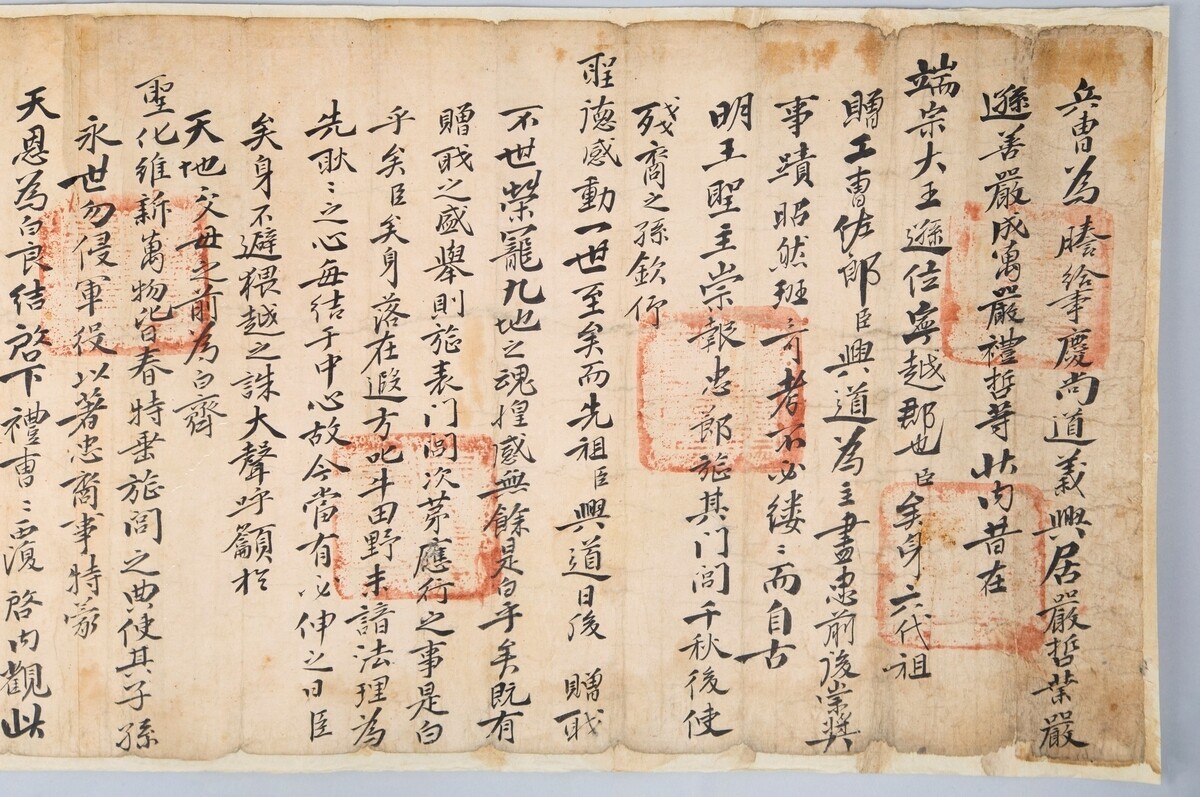 兵曹為謄給事慶尚道義興居嚴哲業嚴
遜善嚴成萬嚴禮哲等狀內昔在
端宗大王遜位寧越郡也臣矣身六代祖
贈工曹佐郎臣興道為主盡忠前後崇奬
事蹟昭然班班可考不必縷〻而自古
明王聖主崇報忠節旌其門閭千秋後使
殘裔之孫欽仰
聖德感動一世至矣而先祖臣興道日後 贈職
不世榮寵九地之魂惶感無餘是白乎矣既有
贈職之盛舉則旌表门閭次苐應行之事是白
乎矣臣矣身落在遐方叱牛田野未諳法理為
先耿〻之心每結于中心故今當有必伸之日臣
矣身不避猥越之誅大聲呼籲於
天地父母之前為白齊
聖化維新萬物皆春特垂旌閭之典使其子孫
永世勿侵軍役以著忠裔事特蒙
天恩為白良結啓下禮曹〻覆啓內觀此